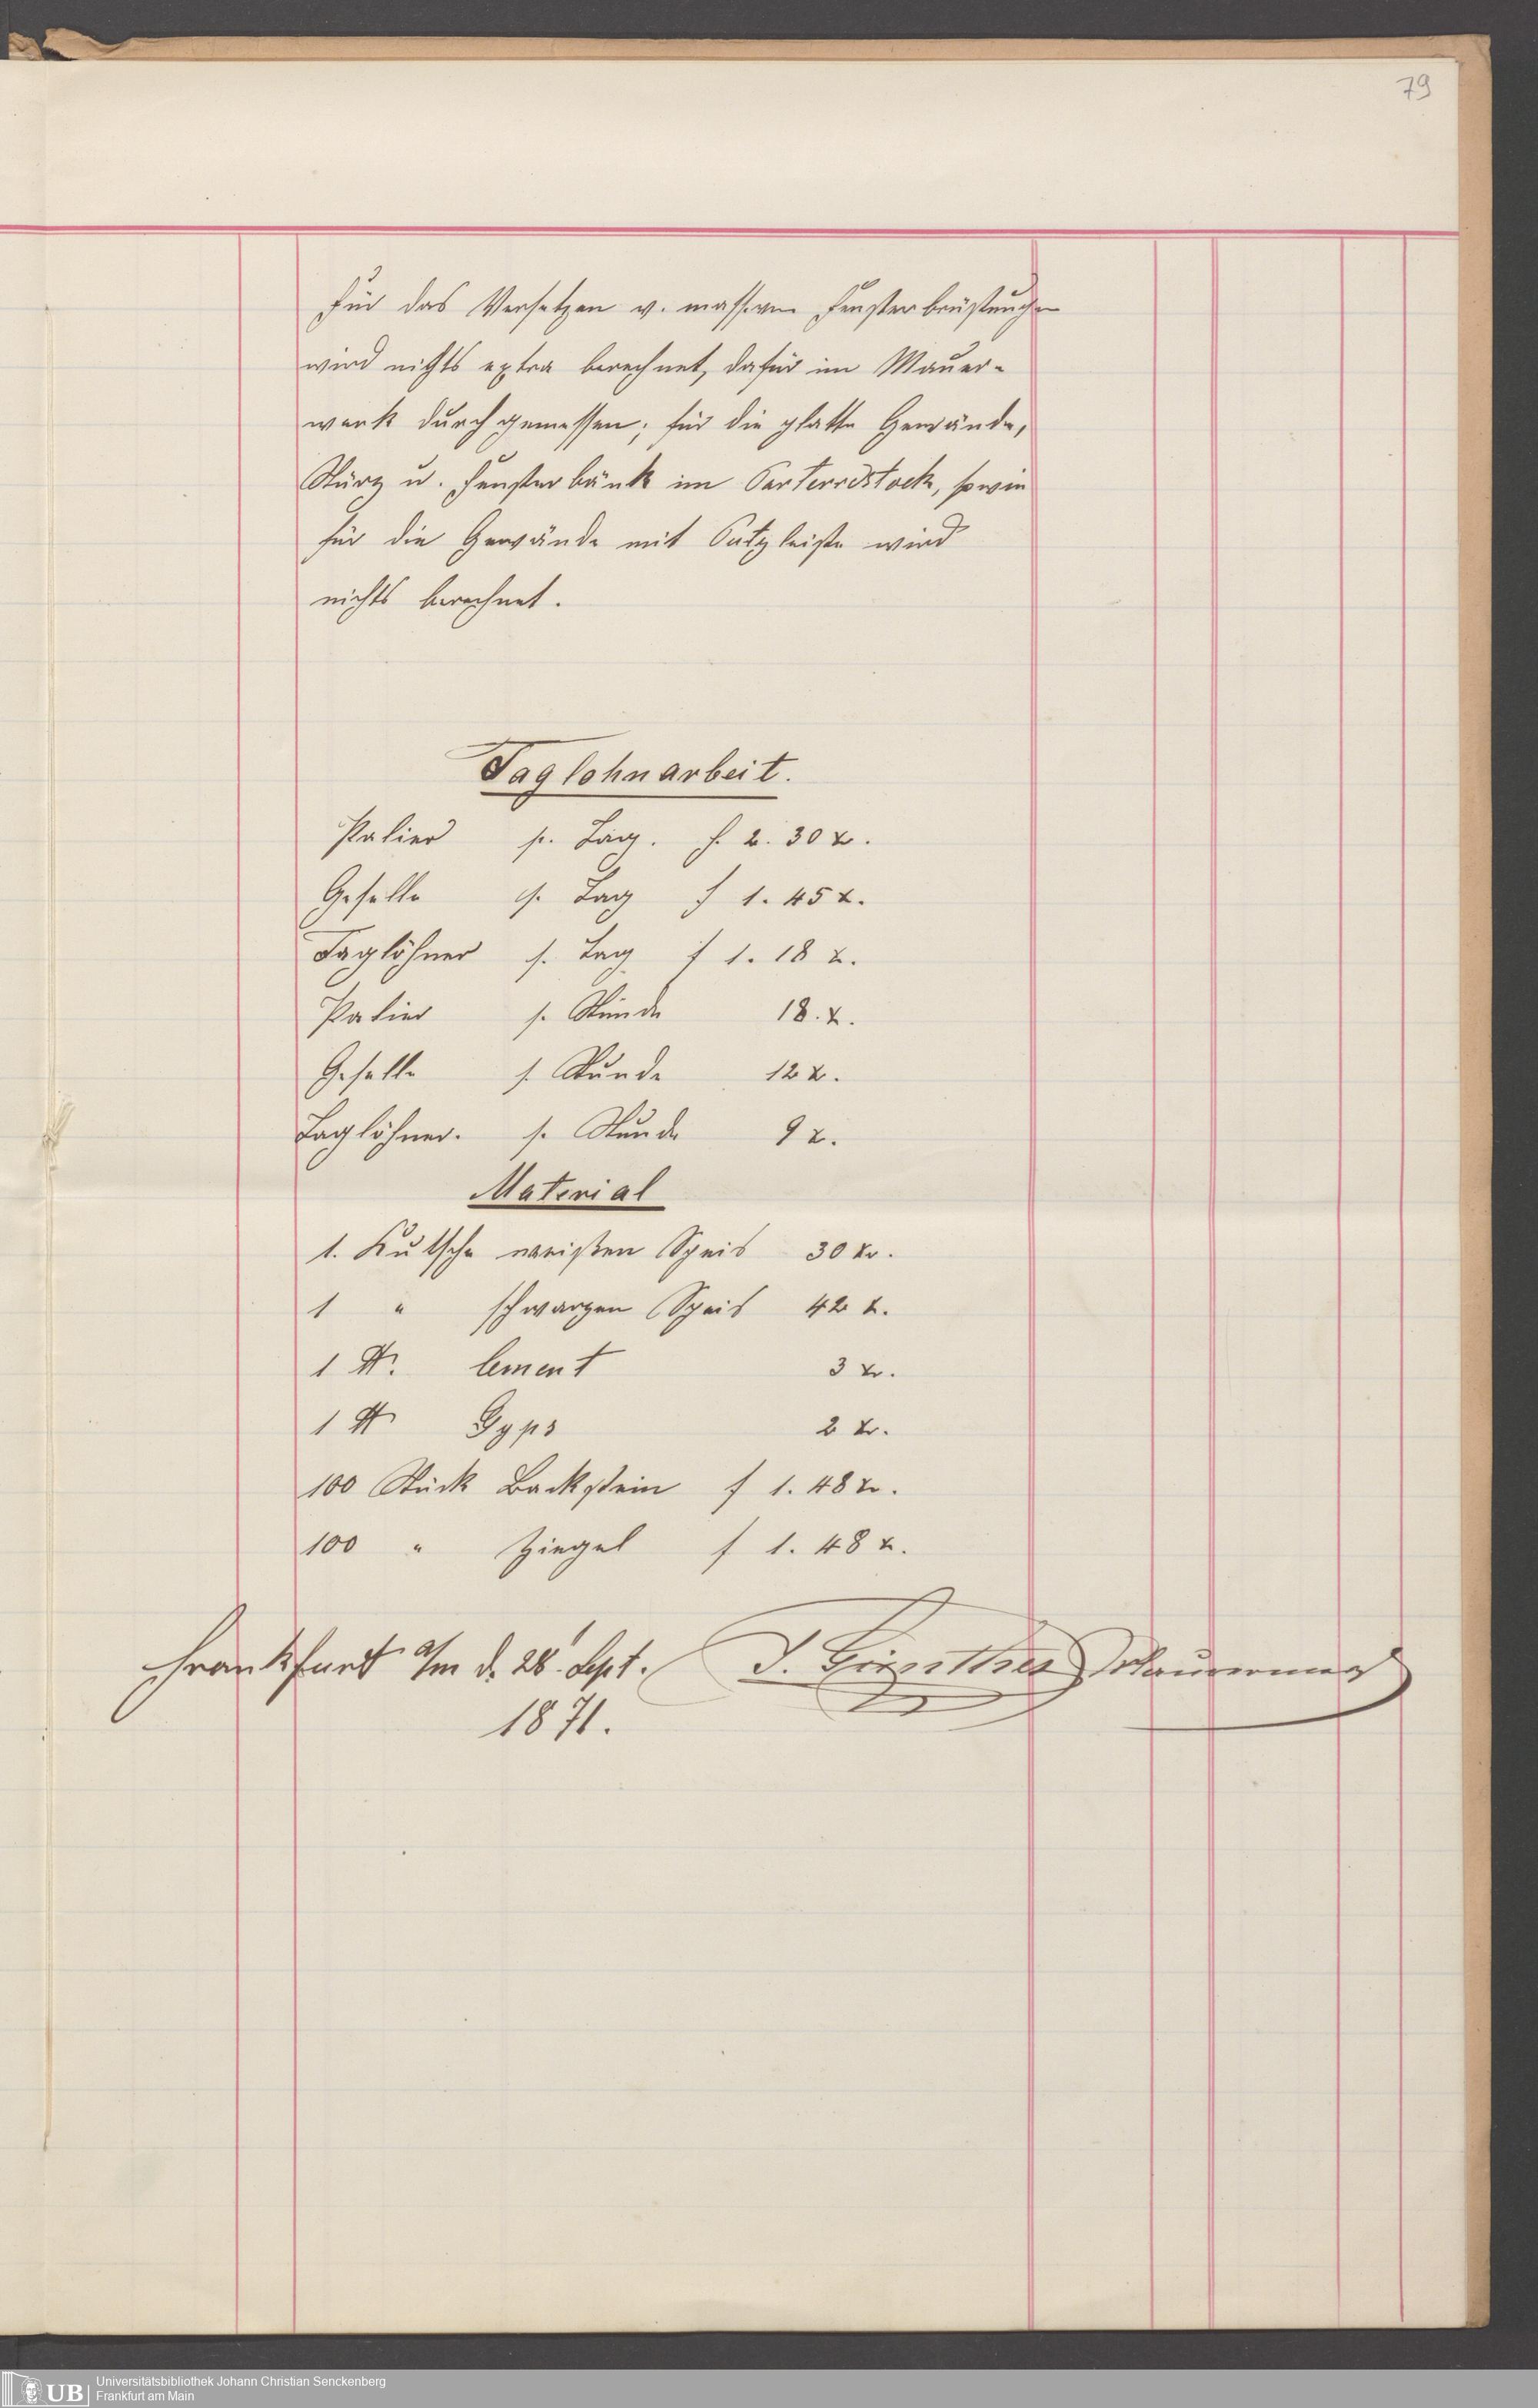 79
Für das Versetzen v. massiven Fensterbrüstungen
wird nichts extra berechnet, dafür im Mauer-
werk durchgemessen; für die glatte Gewände,
Stürz u. Fensterbänk im Parterrestock, sowie
für die Gewände mit Putzleiste wird
nichts berechnet.
Taglohnarbeit.
Palier p. Tag. f. 2. 30 xr.
Geselle p. Tag f 1. 45 x.
Taglöhner p. Tag f 1. 18 x.
Palier p. Stunde 18. x.
Geselle p. Stunde 12 x.
Taglöhner. p. Stunde 9 x.
Material
1. Kutsche weißen Speis 30 xr.
1 " schwarzen Speis 42 x.
1 ℔. Cement 3 xr.
1 ℔ Gyps 2 xr.
100 Stück Backstein f 1. 48 xr.
100 " Ziegel f 1. 48 x.
Frankfurt a/m d. 28. Sept. J. Günther Maurermeis
1871.
UB Universitätsbibliothek Johann Christian Senckenberg
Frankfurt am Main